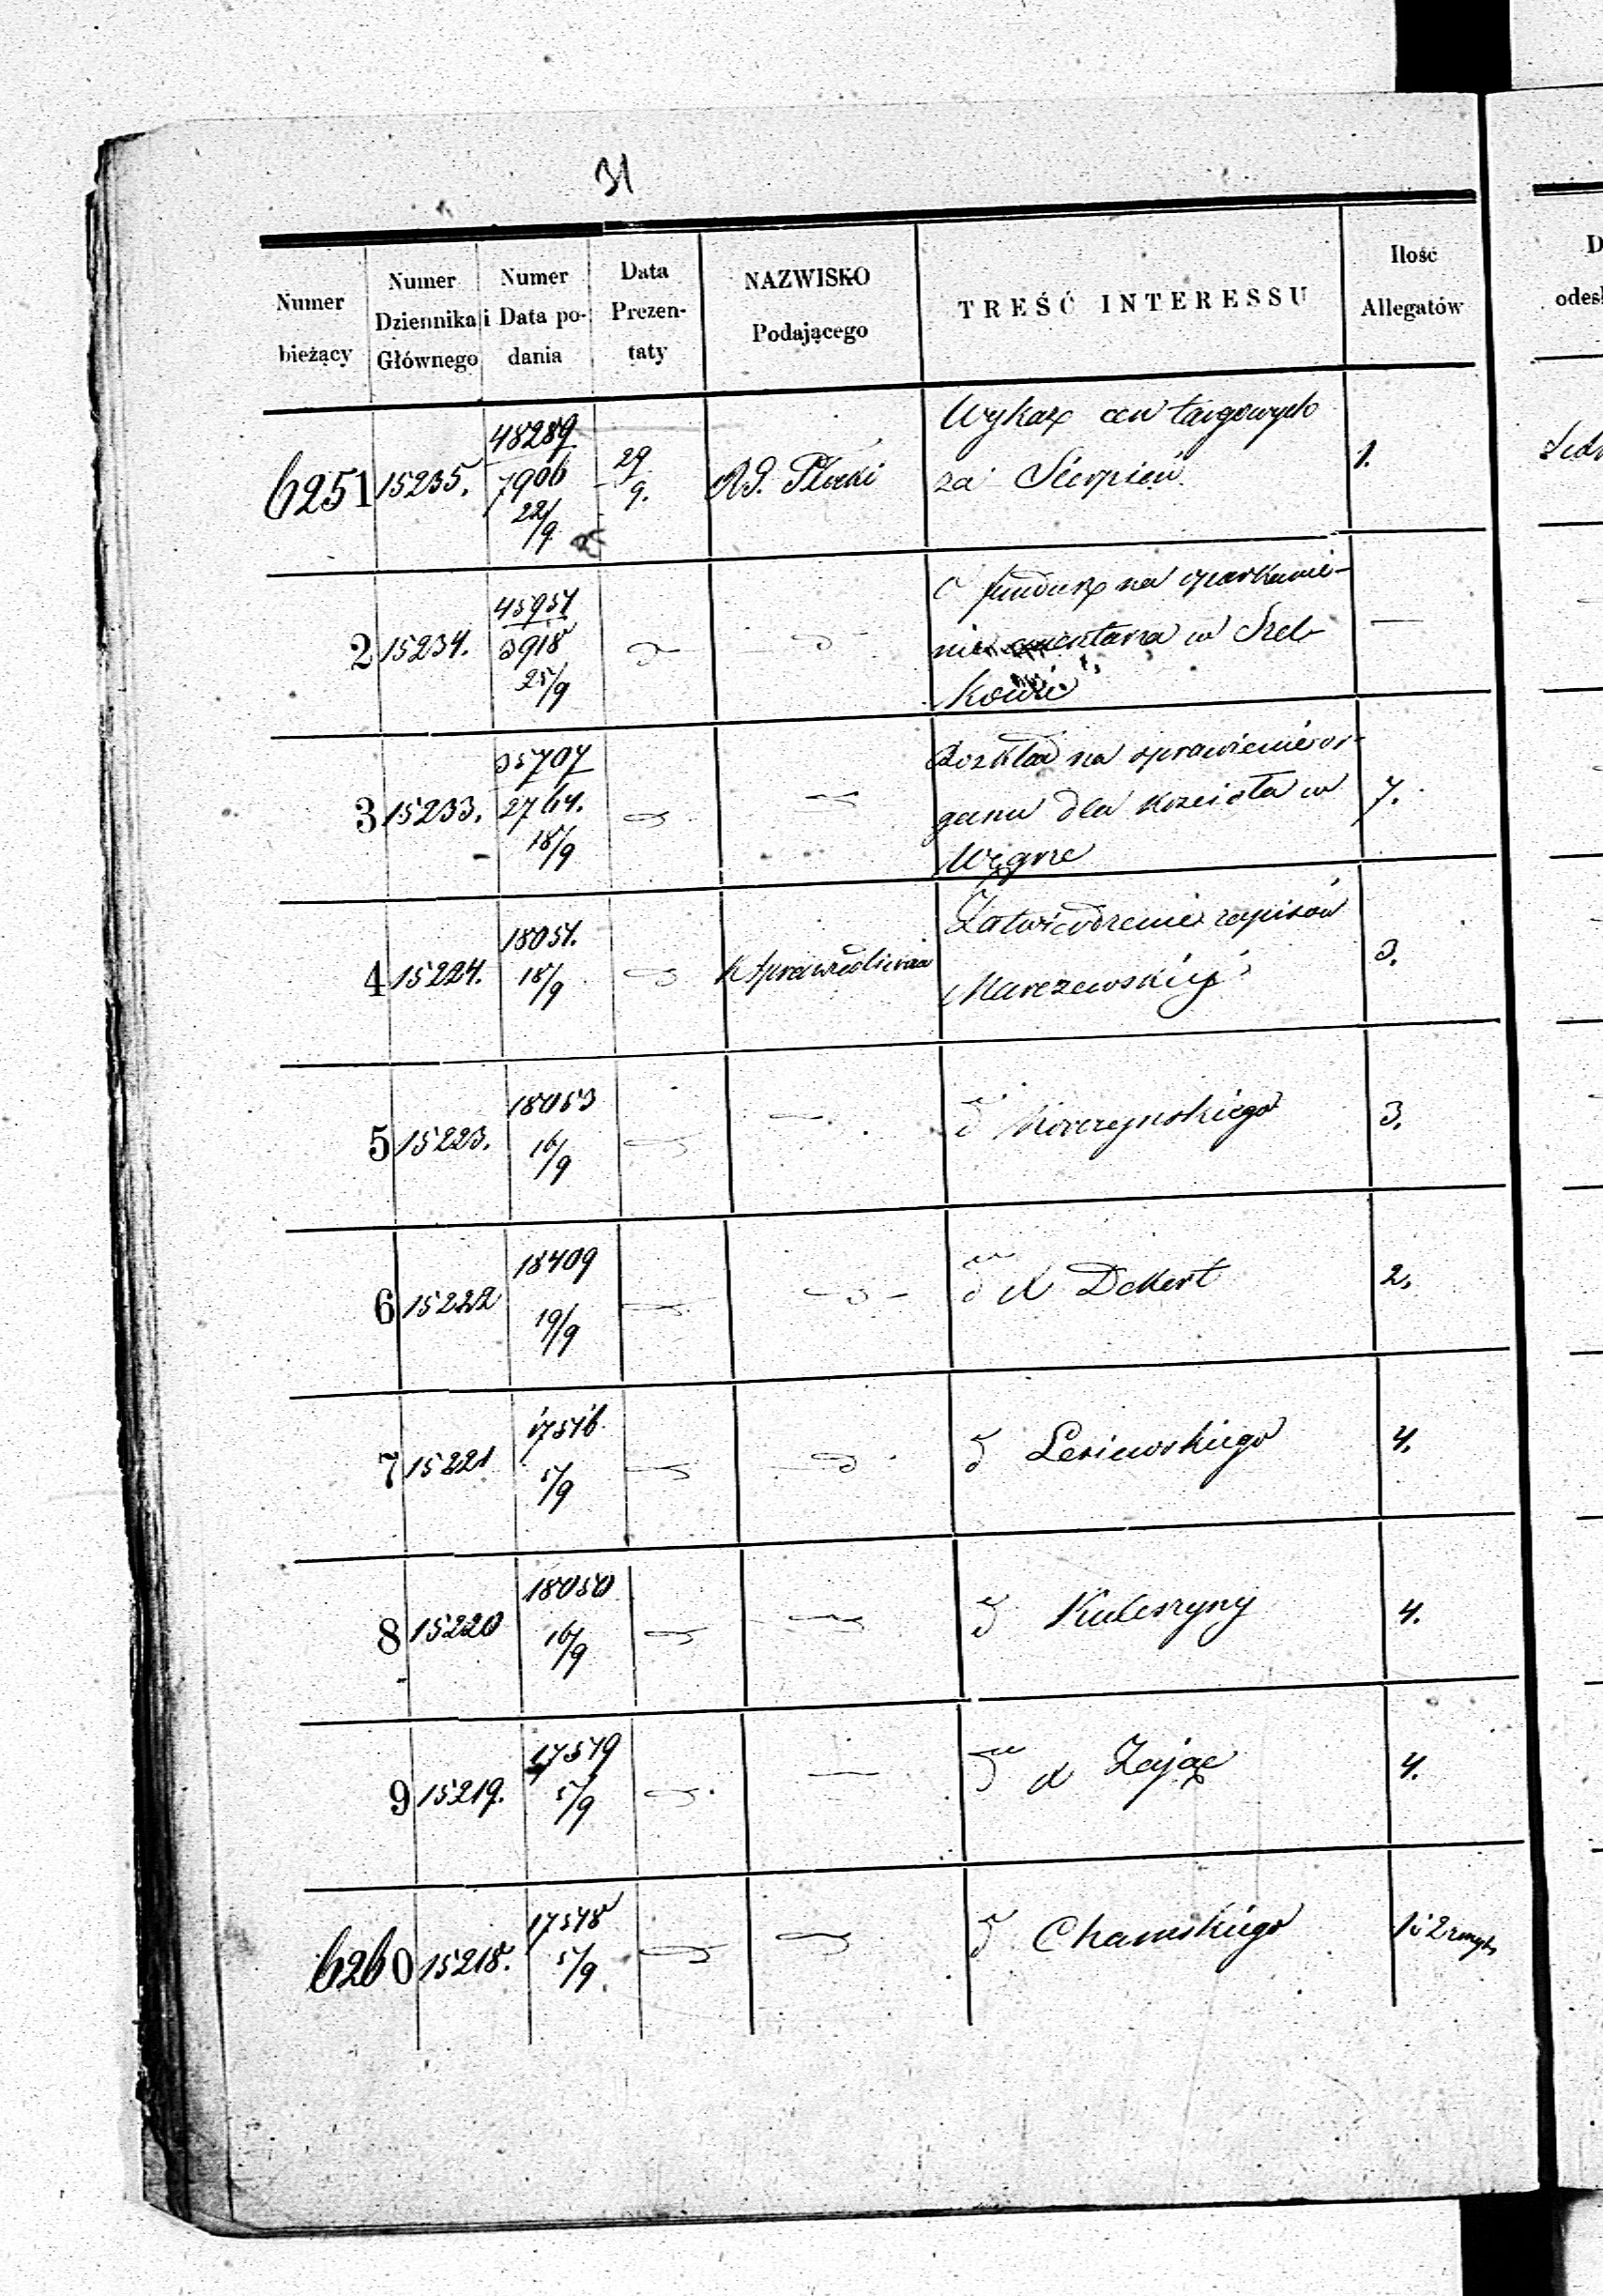 31
Numer bieżący
Numer Dziennika Głównego
Numer i Data podania
Data Prezentaty
NAZWISKO Podającego
TREŚĆ INTERESSU
Ilość Allegatów
6251 15235. 48289 7906 22/9 29/9. RG. Płocki Wykaz cen targowych 1.
za Sierpień
2 15234. 45951 3918 25/9 O fundusz na oparkanie- —
nie cmentarza w Szel-
kowie
3 15233. 35707 2764. 18/9 Rozkład na sprawienie or- 7.
ganu dla kościoła w
Węgrze
4 15224. 18051. 18/9 K Sprawiedliwości Zatwierdzenie zapisów 3.
Marczewskiej
5 15223. 18053 16/9 — d Korczyńskiego 3.
6 15222 18409 19/9 d X Dekert 2.
7 15221 17516 5/9 d Lesiewskiego 4.
8 15220 18050 16/9 d Kuleszyny 4.
9 15219. 17519 5/9 — d X Zając 4.
6260 15218. 17518 5/9. d Chamskiego 1 i 2
D
odes